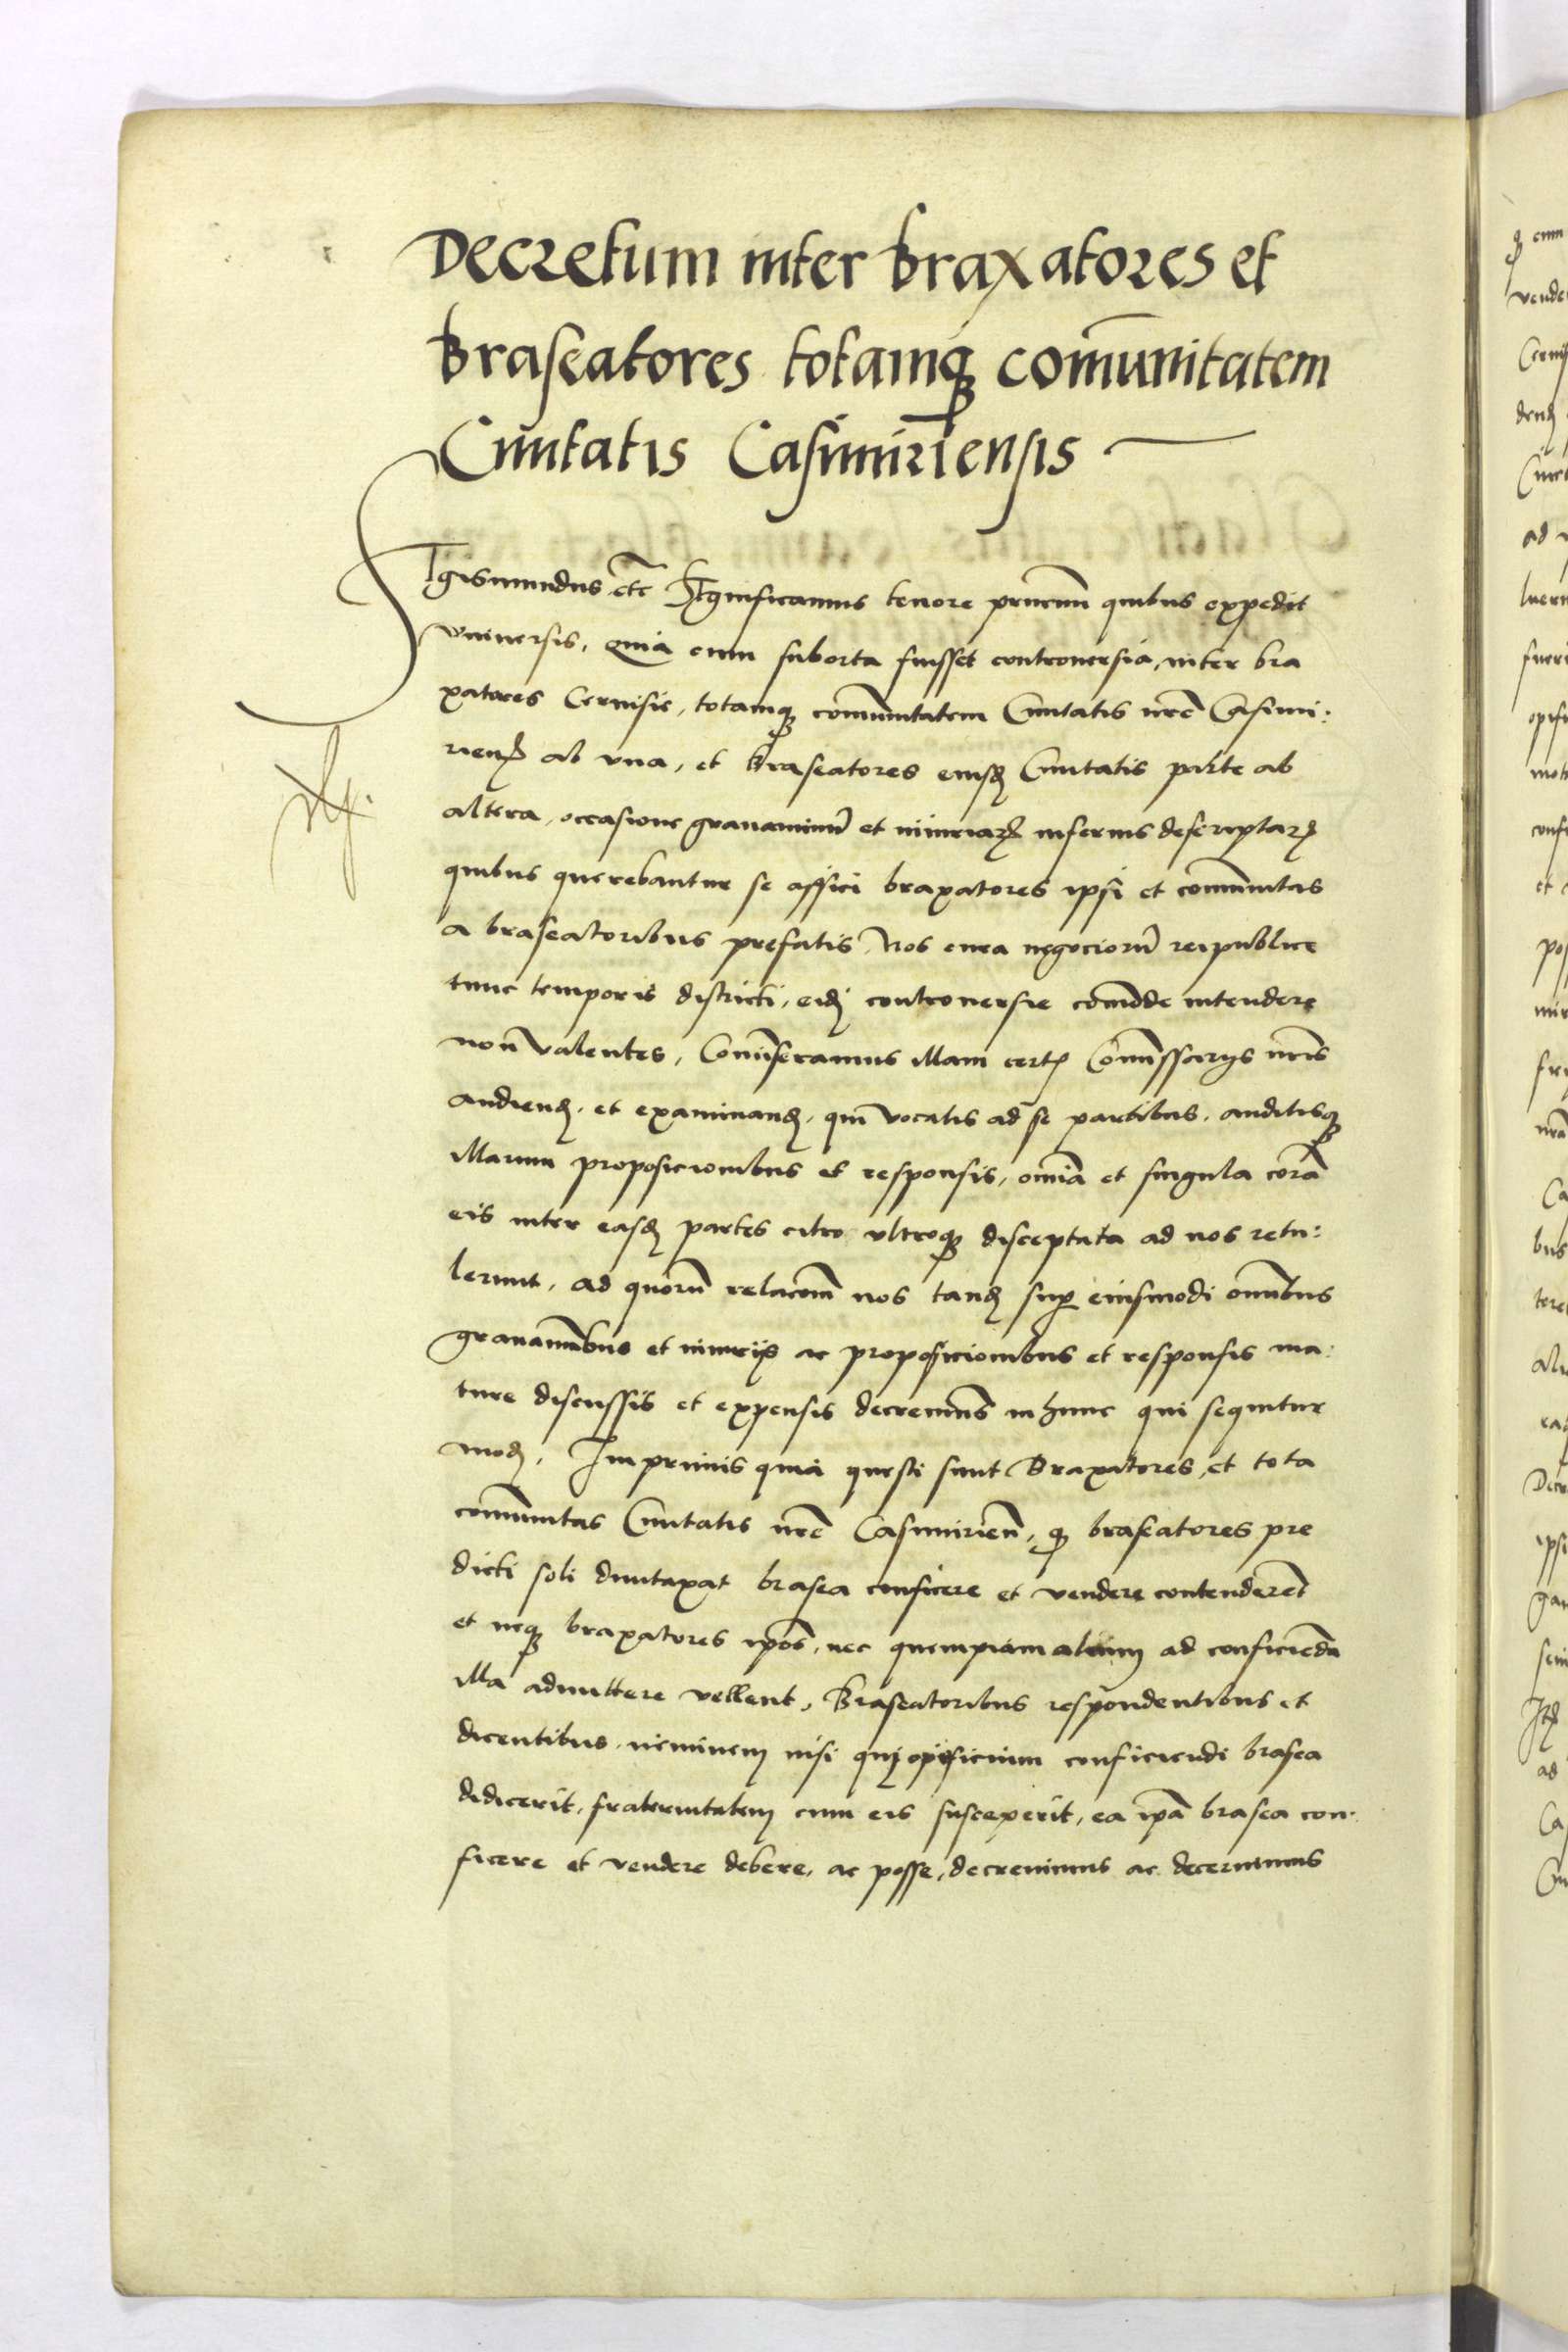 Decretum inter braxatores et
braseatores totamq comunitatem
Ciuitatis Casimiriensis
Sigismundus etc Significamus tenore prncium quibus expedit
vniuersis, Quia cum suborta fuisset controuersia, inter bra
xatores Ceruisie, totamq comunitatem Ciuitatis nre Casimi:
rien ab vna, et braseatores eiusd Ciuitatis parte ab
altera, occasione grauaminu et iniuriar inferius descriptar
quibus querebantur se affici braxatores ipsi et comunitas
a braseatoribus prefatis, Nos circa negocioru reipublice
tunc temporis districti, eid controuersie comode intendere
non valentes, Comiseramus illam cert Comissarijs nris
audiend, et examinand, qui vocatis ad se partibus, auditisq
illarum proposicionibus et responsis, omia et singula cora
eis inter easd partes citro vltroq disceptata ad nos retu:
lerunt, ad quoru relacom nos tand sup eiusmodi omibus
grauaminibus et iniurijs ac proposicionibus et responsis ma:
ture discussis et expensis decreuimus in hunc qui sequitur
mod, Imprimis quia questi sunt Braxatores, et tota
comunitas Ciuitatis nre Casimirien, q braseatores pre
dicti soli duntaxat brasea conficere et vendere contenderet
et neq braxatores ipos, nec quempiam alium ad conficieda
illa admittere vellent, Braseatoribus respondentibus et
dicentibus neminem nisi qui opificium conficiendi brasea
didicerit, fraternitatem cum eis susceperit, ea ipa brasea con:
ficere et vendere debere, ac posse, decreuimus ac decernimus